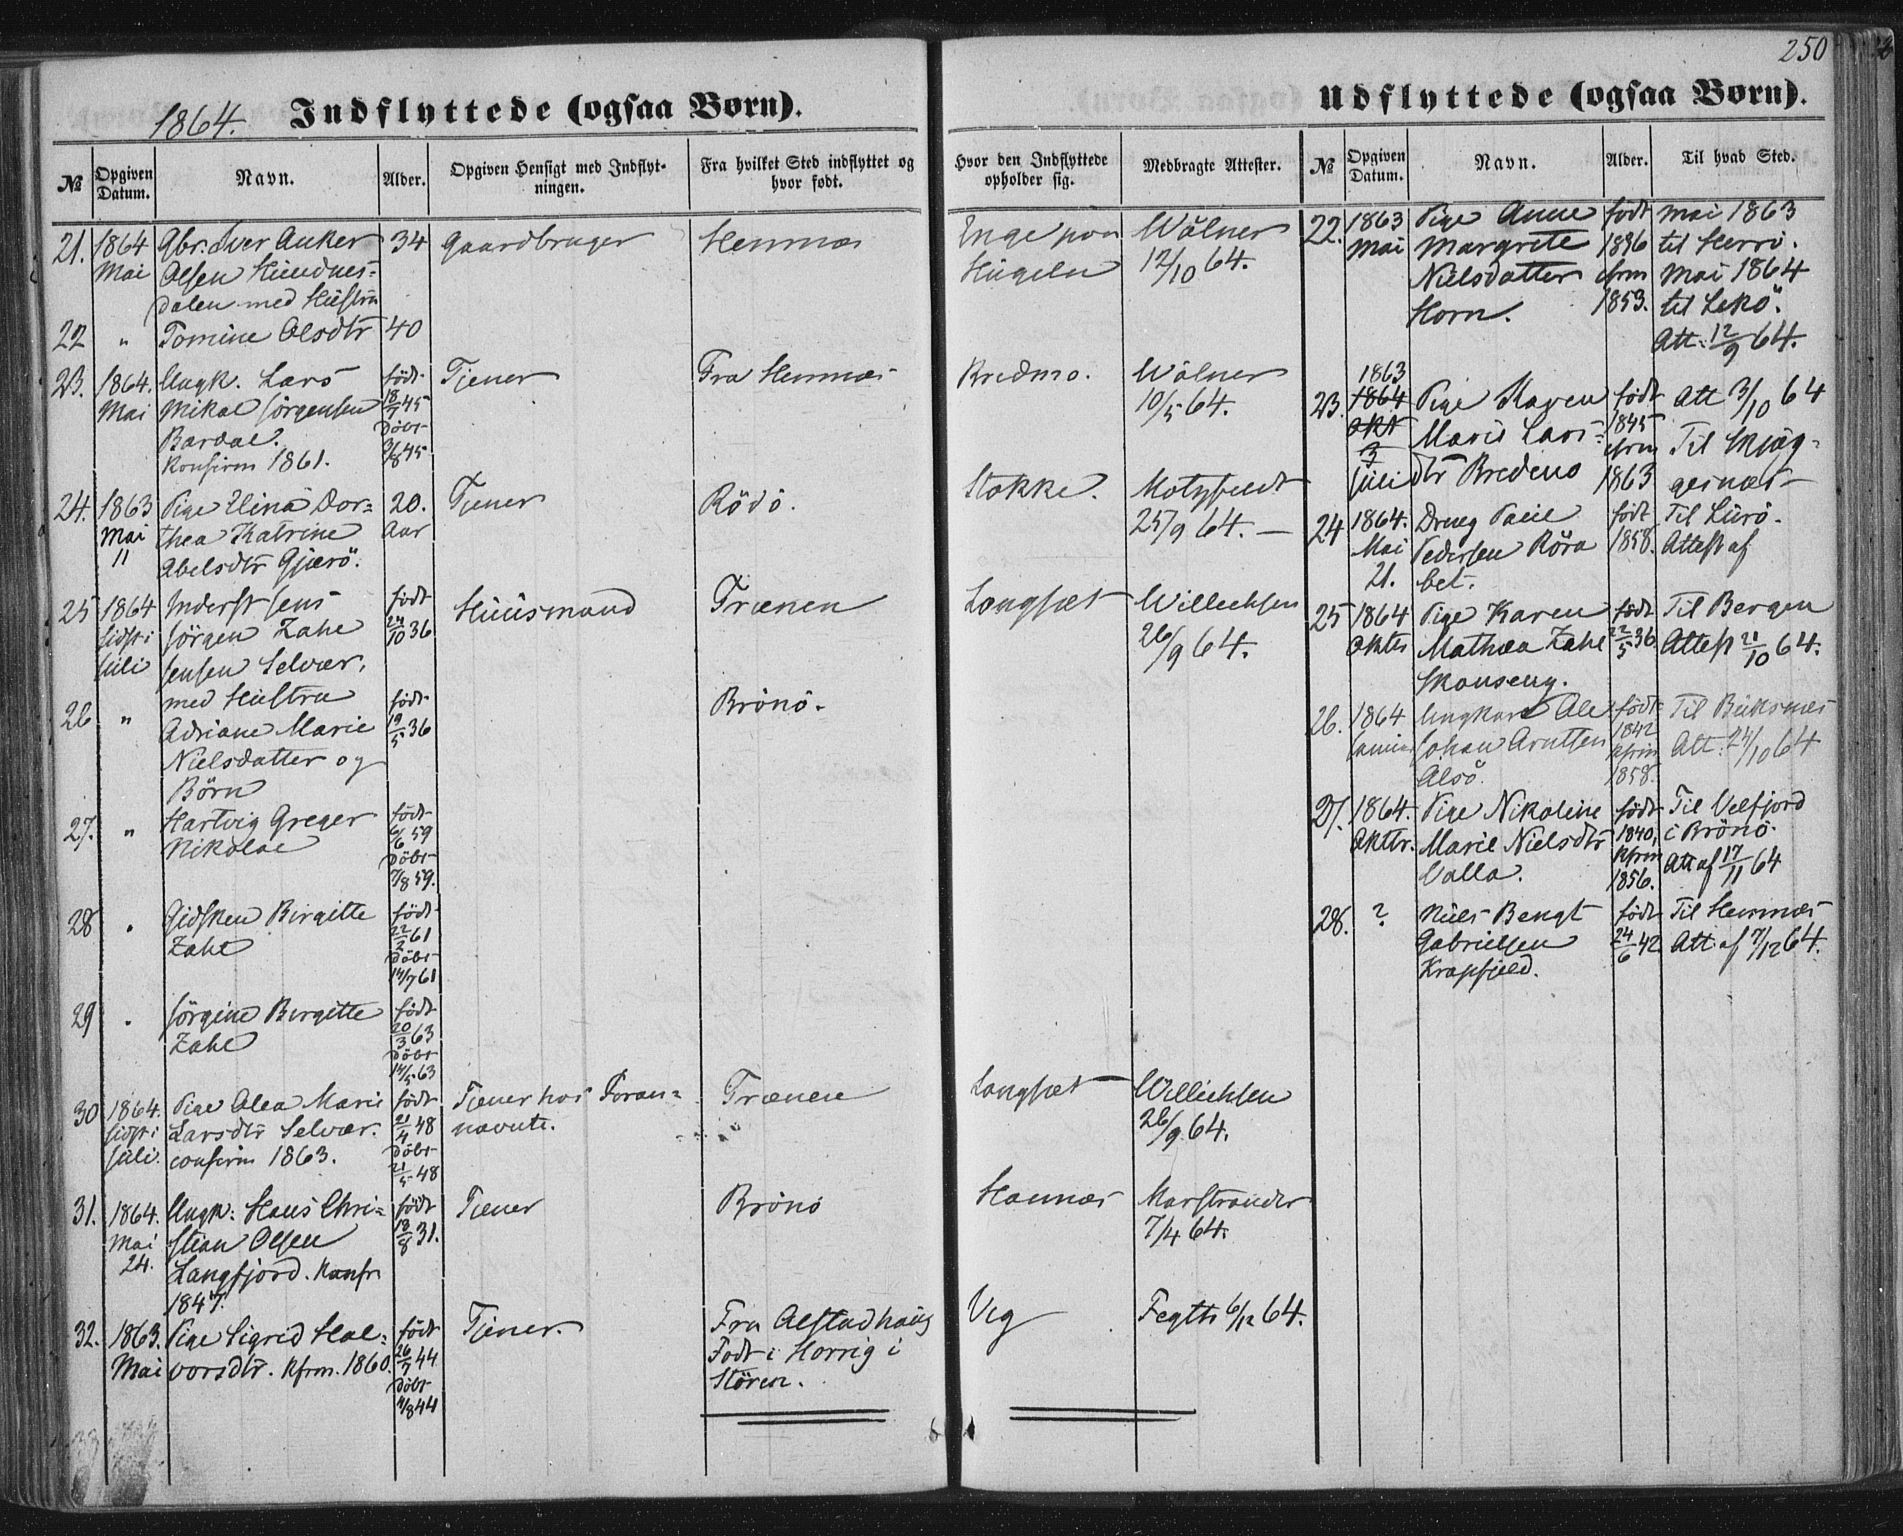 250
1864. Indflyttede (ogsaa Børn).
No
Opgiven Datum.
Navn.
Alder.
Opgiven Hensigt med Indflyt-
ningen.
Fra hvilket Sted indflyttet og
hvor født.
Hvor den Indflyttede
opholder sig.
Medbragte Attester.
21. 1864 Gbr. Iver Anker 34 Gaardbruger Hemnæs Enge paa Wölner
Mai Olsen
Hügeln 12/10 64.
dalen med Hüstru
22 " Tomine Olsdtr 40
23. 1864. Ungk. Lars født Tjener Fra Hemnæs Bredmo. Wölner
Mai Mikal Jörgensen 18/7 45 10/5 64.
Bardal. Döbt
Konfirm 1861. 3/8 45
24. 1863 Pige Elina Dor= 20. Tjener Rödö. Stokke. Motzfeldt
Mai thea Katrine Aar 25/9 64. —
11 Abelsdtr Gjærö.
25 1864 Inderst Jens født Hüüsmand Trænen Langsæt Willechsen
sidst i Jörgen Zahl 24/10 36 26/9 64.
Juli Jensen Selvær,
26 " med Hüstru født Brönö.
Adriane Marie 19/5 36
Nielsdatter og
Börn
27. " Hartvig Greger født
Nikolai 6/6 59
Döbt
7/8 59.
28 " Gidsken Birgitte født
Zahl 22/2 61
Döbt
14/7 61
29 " Jörgine Birgitte født
Zahl 20/3 63
Döbt
14/5 63
30 1864. Pige Olea Marie født Tjener hos Foran= Trænen Langsæt Willechsen
sidst i Larsdtr Selvær. 21/4 48 nævnte. 26/9 64.
Juli. confirm 1863. Döbt
21/5 48
31. 1864. Ungk: Hans Chri= født Tjener Brönö Hannæs Marstrander
Mai stian Olsen 18/8 31. 7/4 64.
24. Langfjord. Konfr
1847.
32. 1863. Pige Sigrid Hal= født Tjener. Fra Alstadhaüg Veg 6/12 64.
Mai vorsdtr. Kfrm. 1860. 26/7 44 Født i Horrig i
Döbt Stören.
4/8 44
Udflyttede (ogsaa Børn).
No
Opgiven Datum.
Navn.
Alder.
Til hvad Sted.
22. 1863 Pige Anne født mai 1863
Mai Margrete 1836 til Herrö.
Nielsdatter cfrm Mai 1864
Horn. 1853. til Lekö.
Att. 12/9 64.
1863
23. 1864 Pige Karen født Att 3/10 64
okt Marie Lars= 1845
3 dtr Bredmo cfrm Til
Juli 1863
24 1864. Dreng Paul født Til Lürö.
Mai Pedersen Röra 1858. Attest af
21. bet.
25 1864 Pige Karen født Til Bergen
Oktbr Mathea Zahl 22/5 36. Attest 21/10 64.
Skonseng.
26. 1864 Ungkarl Ole født Til Büksnæs
Johan Arntsen 1842 Att. 24/10 64
Alsö. Kfrm
1858.
27. 1864. Pige Nikoline født Til Velfjord
Oktbr. Marie Nielsdtr 1840, i Brönö.
Valla. Kfrm Att af 17/11 64
1856.
28. ? Niels Bengt født Til Hemnæs
Gabrielsen 24/6 42 Att. af 7/12 64.
Krapfjeld.